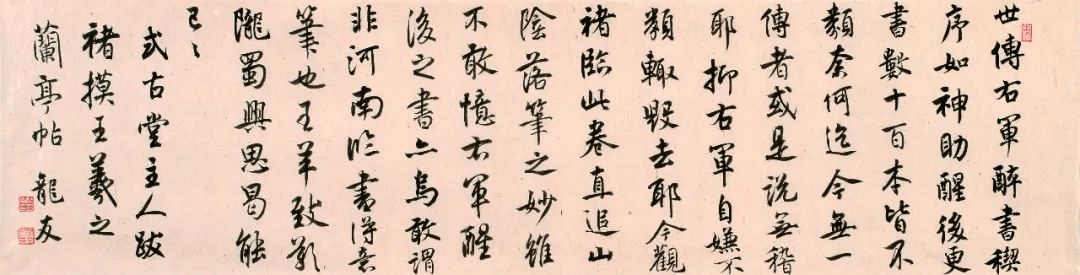 世傳右軍醉書稧
序如神助醒後更
書數十百本皆不
類奈何迄今無一
傳者或是說無稽
耶抑右軍自嫌不
類輙毀去耶今觀
褚臨此卷直追山
陰落筆之妙雖
不敢憶右軍醒
後之書亦烏敢謂
非河南臨書得意
筆也王羊致歎
隴蜀興思曷能
已〻
式古堂主人跋
褚摸王羲之
蘭亭帖 龍友